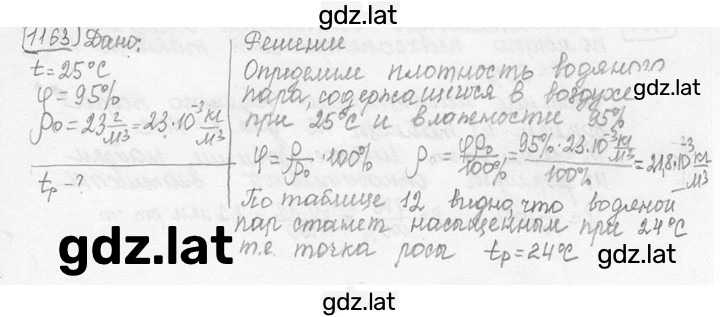 gdz.lat
1163 Дано:
t = 25°C
φ = 95%
ρ₀ = 23 г/м³ = 23·10⁻³ кг/м³
tр - ?
Решение
Определим плотность водяного
пара, содержащегося в воздухе
при 25°C и влажности 95%
φ = ρ/ρ₀ · 100% ρ = φρ₀/100% = 95%·23·10⁻³ кг/м³/100% = 21,8·10⁻³ кг/м³
По таблице 12 видно, что водяной
пар станет насыщенным при 24°C
т.е. точка росы tр = 24°C
gdz.lat
gdz.lat
gdz.lat